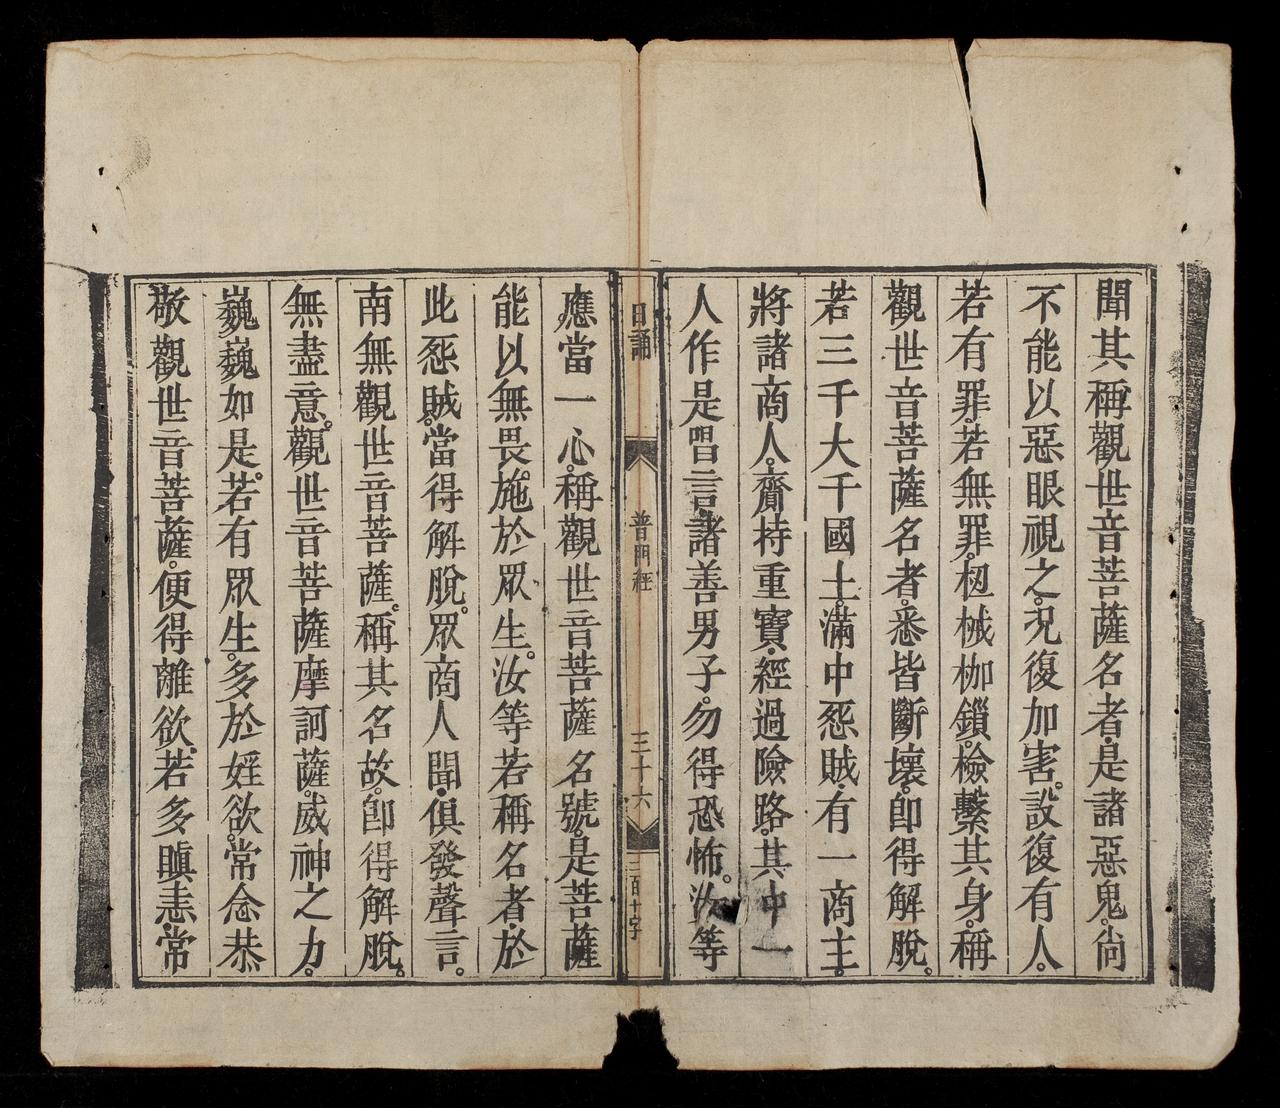 聞其稱觀世音菩薩名者是諸惡鬼。尚
不能以惡眼視之。况復加害。設復有人。
若有罪。若無罪。杻械枷鎖。檢繫其身。稱
觀世音菩薩名者。悉皆斷壞。即得解脫。
若三千大千國土。滿中怨賊。有一商主。
將諸商人。齎持重寶。經過險路。其中一
人作是唱言。諸善男子。勿得恐怖。汝等
日誦 普門經 三十六 三百十字
應當一心。稱觀世音菩薩名號。是菩薩
能以無畏。施於眾生。汝等若稱名者。於
此怨賊。當得解脫。眾商人聞。俱發聲言。
南無觀世音菩薩。稱其名故。即得解脫。
無盡意。觀世音菩薩摩訶薩。威神之力。
巍巍如是。若有眾生。多於婬欲。常念恭
敬觀世音菩薩。便得離欲。若多瞋恚。常